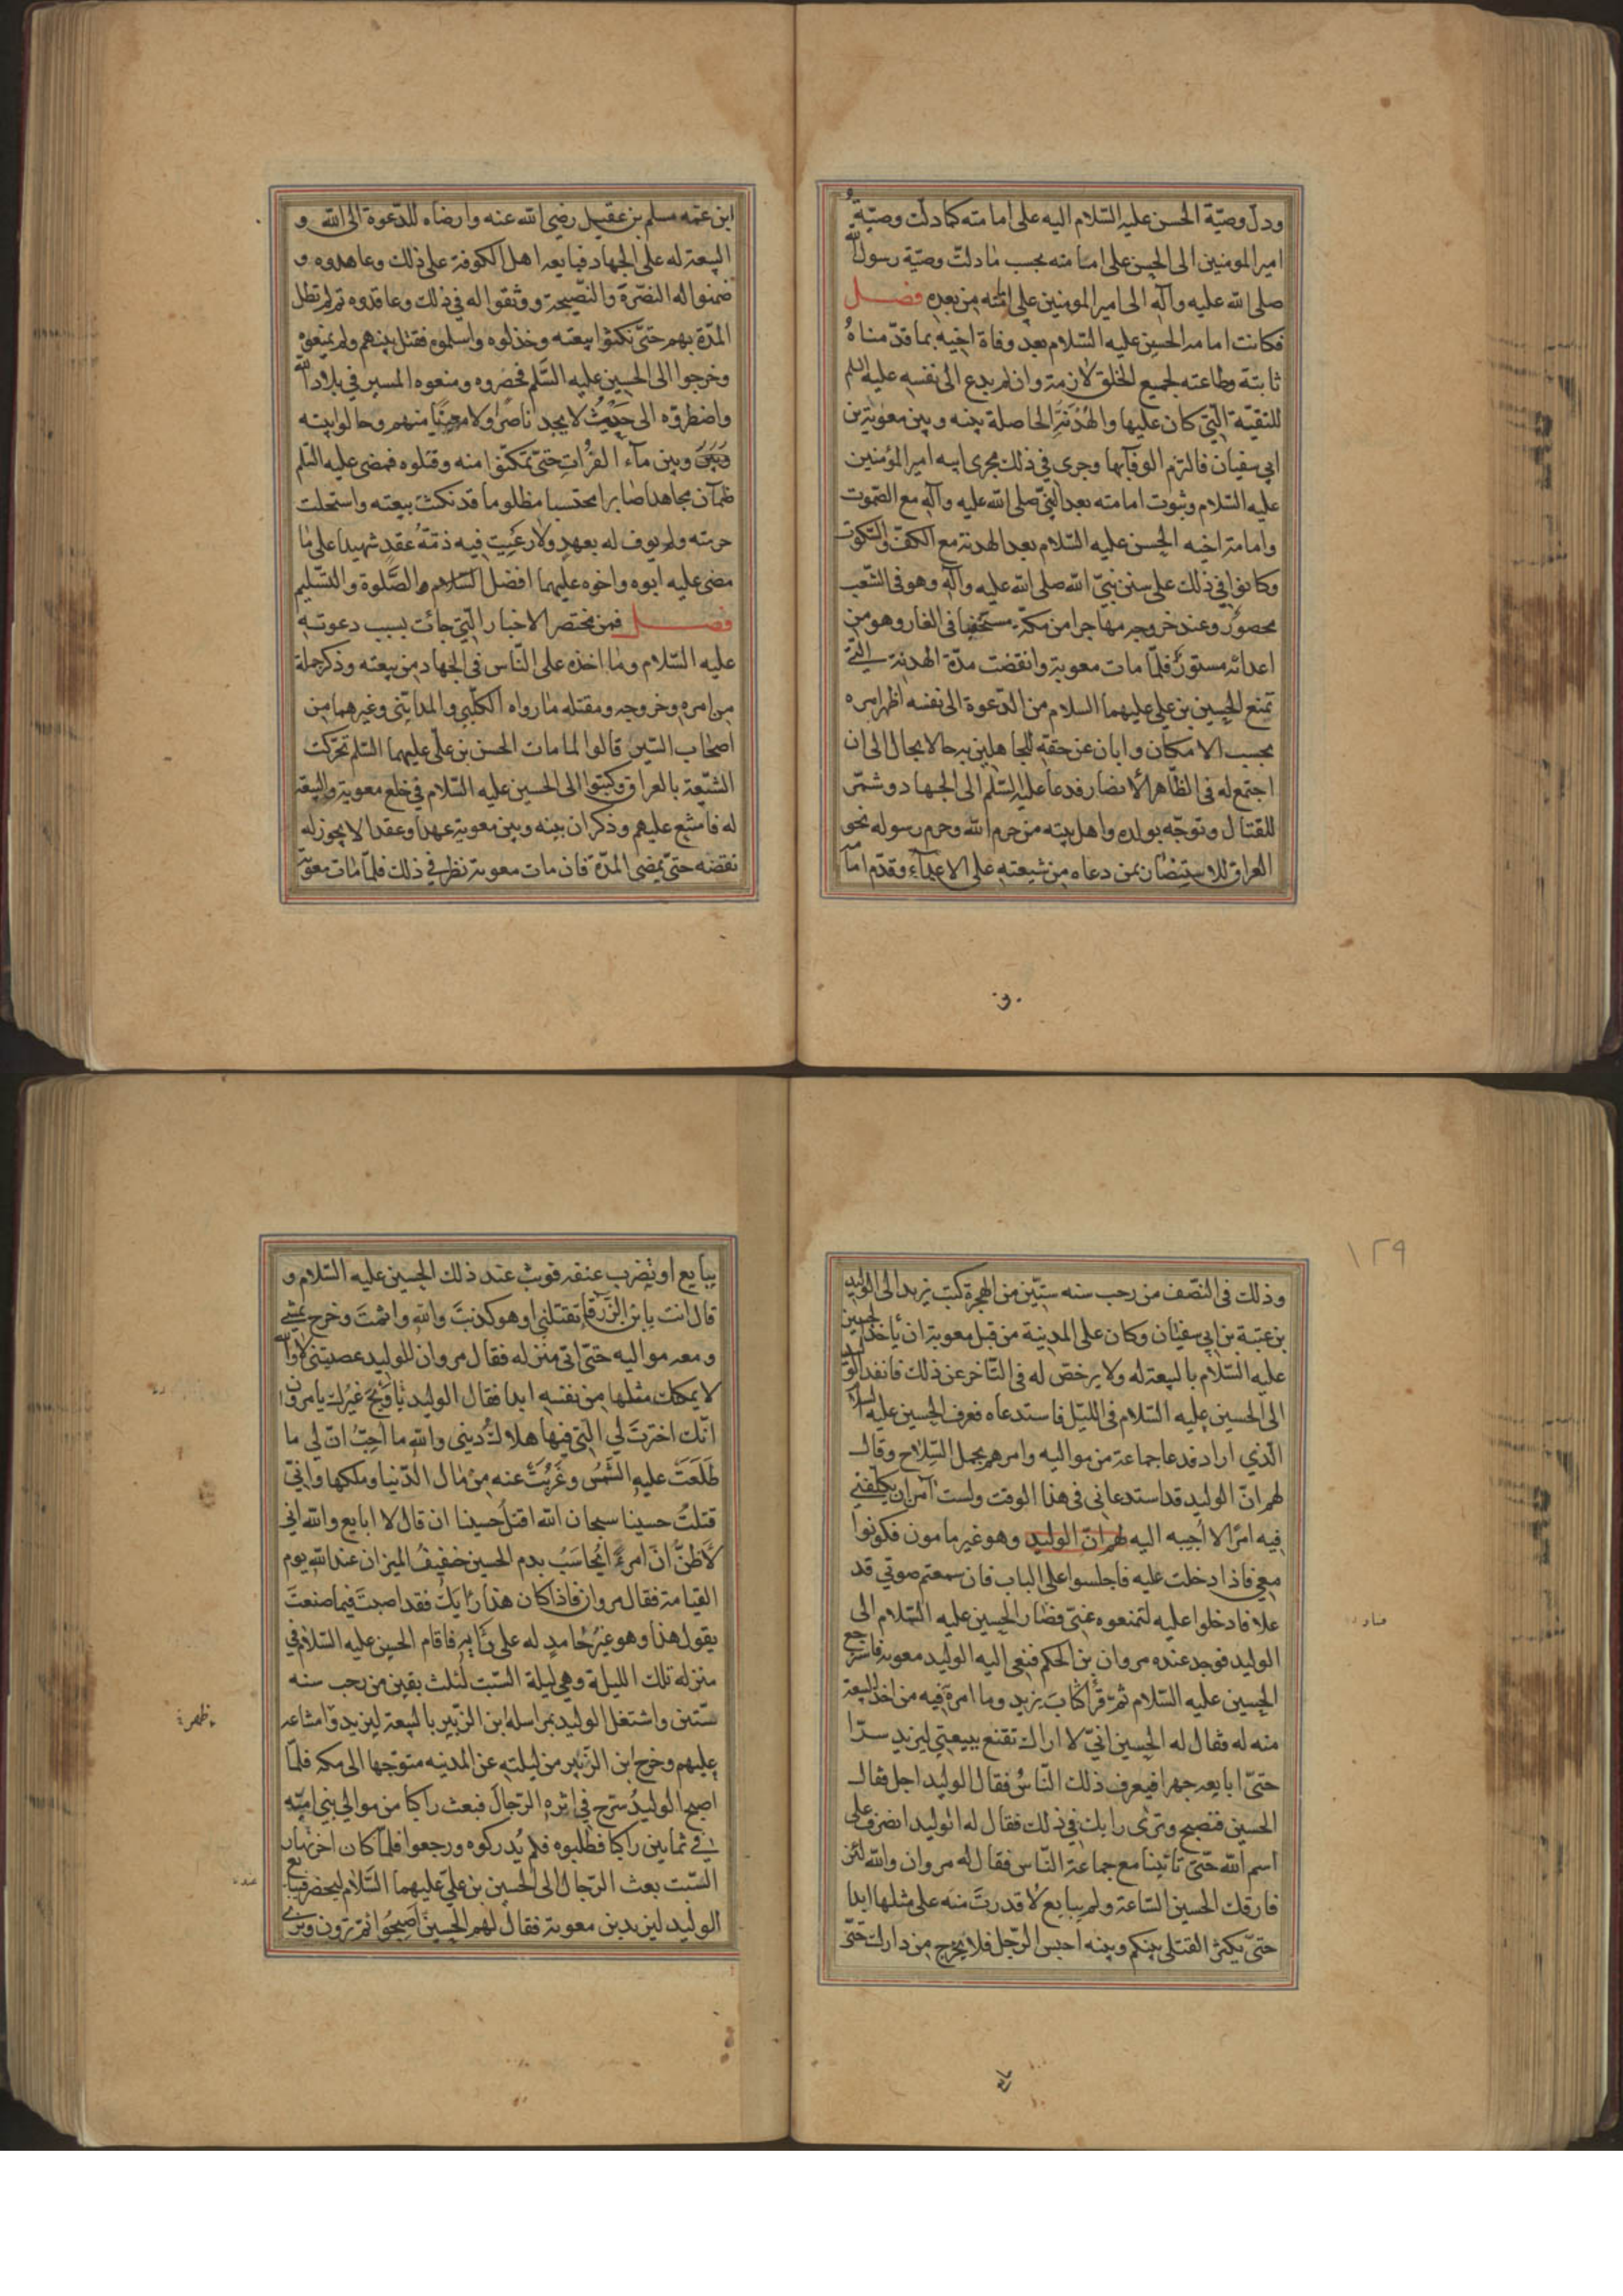 ودل وصيّة الحسن عليه السّلام اليه على امامته كما دلّت وصيّةُ
امير المومنين الى الحسن على امامته بحسب ما دلّت وصيّة رسول الله
صلى الله عليه وآله الى امير المومنين على امامته من بعده فصل
فكانت امامة الحسين عليه السّلام بعد وفاة اخيه بما قدّمناهُ
ثابتة وطاعته لجميع الخلق لازمة وان لم يدع الى نفسه عليه السلم
للتقيّة الّتي كان عليها والهُدْنَةِ الحاصلة بينه وبين معوية بن
ابي سفيان فالتزم الوفآء بها وجرى في ذلك مجرى ابيه امير المؤمنين
عليه السّلام وثبوت امامته بعد النبيّ صلى الله عليه وآله مع الصّموت
وامامة اخيه الحسن عليه السّلام بعد الهدنة مع الكفّ والسّكوت
وكانوا في ذلك على سنن نبيّ الله صلى الله عليه وآله وهو في الشّعب
محصورٌ وعند خروجه مهاجرا من مكّة مستخفيا في الغار وهو من
اعدائه مستورٌ فلمّا مات معوية وانقضت مدّة الهدنة الّتي
تمنع الحسين بن علي عليهما السلام من الدّعوة الى نفسه اظهر امره
بحسب الامكان وابان عن حقه للجاهلين به حالا بحال الى ان
اجتمع له في الظّاهر الانصار فدعا عليه السّلم الى الجهاد وشمّر
للقتال وتوجّه بولده واهل بيته من حرم الله وحرم رسوله نحو
العراق للاستنصار بمن دعاه من شيعته على الاعدآء وقدّم امامه
ابن عمّه مسلم بن عقيل رضي الله عنه وارضاه للدّعوة الى الله و
البيعة له على الجهاد فبايعه اهل الكوفة على ذلك وعاهدوه و
ضمنوا له النصّرة والنّصيحة ووثقوا له في ذلك وعاقدوه ثم لم تطل
المدّة بهم حتّى نكثوا بيعته وخذلوه واسلموه فقتل بينهم ولم يمنعوه
وخرجوا الى الحسين عليه السّلم فحصروه ومنعوه المسير في بلاد الله
واضطروه الى حَيْثُ لا يجد ناصرًا ولا معينًا منهم وحالوا بينه
وبين مآء الفُرَاتِ حتّى تمكنوا منه وقتلوه فمضى عليه السّلم
ظمآن مجاهدا صابرا محتسبا مظلوما قد نكثت بيعته واستحلت
حرمته ولم يوف له بعهدٍ ولا رُعِيَتْ فيه ذمّةُ عُقدٍ شهيدا على ما
مضى عليه ابوه واخوه عليهما افضل السّلام والصّلوة والتسّليم
فصل فمن مختصر الاخبار الّتي جائت بسبب دعوته
عليه السّلام وما اخذه على النّاس في الجهاد من بيعته وذكر جملة
من امره وخروجه ومقتله ما رواه الكلبي والمدايني وغيرهما من
اصحاب السّير قالوا لما مات الحسن بن علي عليهما السّلم تحرّكت
الشّيعة بالعراق وكتبوا الى الحسين عليه السّلام في خلع معوية والبيعة
له فامتنع عليهم وذكر ان بينه وبين معوية عهدا وعقدا لا يجوز له
نقضه حتّى تمضي المدّة فان مات معوية نظر في ذلك فلمّا مات معوية
١٢٩
وذلك في النّصف من رجب سنه ستّين من الهجرة كتب يزيد الى الوليد
بن عتبة بن ابي سفيان وكان على المدينة من قبل معوية ان يأخذ الحسين
عليه السّلام بالبيعة له ولا يرخص له في التّاخر عن ذلك فانفذ الوليد
الى الحسين عليه السّلام في اللّيل فاستدعاه فعرف الحسين عليه السّلام
الّذي اراد فدعا جماعة من مواليه وامرهم بحمل السّلاح وقال
لهم انّ الوليد قد استدعاني في هذا الوقت ولست آمن ان يكلّفني
فيه امرًا لا أجيبه اليه لهم انّ الوليد وهو غير مامون فكونوا
معي فاذا دخلت عليه فاجلسوا على الباب فان سمعتم صوتي قد
علا فادخلوا عليه لتمنعوه عنّي فصار الحسين عليه السّلام الى
الوليد فوجد عنده مروان بن الحكم فنعى اليه الوليد معوية فاسترجع
الحسين عليه السّلام ثمّ قرأ كتابَ يزيد وما امره فيه من اخذ البيعة
منه له فقال له الحسين انّي لا اراك تقنع ببيعتي ليزيد سرّا
حتّى ابايعه جهرا فيعرف ذلك النّاسُ فقال الوليد اجل فقال
الحسين فتصبح وترى رايك في ذلك فقال له الوليد انصرف على
اسم الله حتّى تأتينا مع جماعة النّاس فقال له مروان والله لئن
فارقك الحسين السّاعة ولم يبايع لا قدرتَ منه على مثلها ابدا
حتّى يكثر القتلى بينكم وبينه احبس الرّجل فلا يخرج من دارك حتّى
يبايع او تضرب عنقه فوثب عند ذلك الحسين عليه السّلام و
قال انت يا بن الزّرقاء تقتلني او هو كذبتَ والله واثمتَ وخرج يمشي
ومعه مواليه حتّى اتى منزله فقال مروان للوليد عصيتني لا والله
لا يمكنك مثلها من نفسه ابدا فقال الوليد وَيْحَ غيرك يا مروان
انّك اخترتَ لي الّتي فيها هلاك ديني والله ما احبّ انّ لي ما
طَلَعَتْ عليه الشّمس وغَرُبَتْ عنه من مال الدّنيا وملكها وانّي
قتلتُ حسينا سبحان الله اقتل حسينا ان قال لا ابايع والله اني
لَأَظنّ انّ امرءً يُحاسَبُ بدم الحسين خفيفُ الميزان عند الله يوم
القيامة فقال مروان فاذا كان هذا رَأيكَ فقد اصبتَ فيما صنعتَ
يقول هذا وهو غيرُ حامدٍ له على رَأيه فاقام الحسين عليه السّلام في
منزله تلك اللّيلة وهي ليلة السّبت لثلث بقين من رجب سنه
ستّين واشتغل الوليد بمراسلة ابن الزّبير بالبيعة ليزيد وامتناعه
عليهم وخرج ابن الزّبير من ليلته عن المدينه متوجّها الى مكه فلمّا
اصبح الوليدُ سرّح في اثره الرّجالَ فبعث راكبا من موالي بني اميّه
في ثمانين راكبا فطلبوه فلم يُدركوه ورجعوا فلمّا كان اخر نهار
السّبت بعث الرّجال الى الحسين بن علي عليهما السّلام ليحضر فيبايع
الوليد ليزيد بن معوية فقال لهم الحسين اصبحُوا ثم ترون ونرى